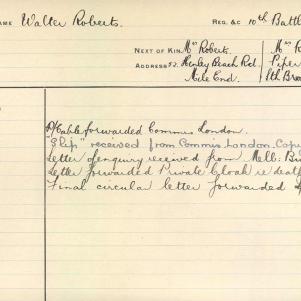 NAME Walter Roberts. REG. &C 10th Battl
NEXT OF KIN Mrs Roberts.
ADDRESS 52. Henley Beach Rd.
Mile End.
Mrs R
Piper
8th Bro
P/Cable forwarded Commis London.
"Slip" received from Commis. London. Copy
Letter of enquiry received from Melb: B
Letter forwarded Private Cloak re death
Final circular letter forwarded